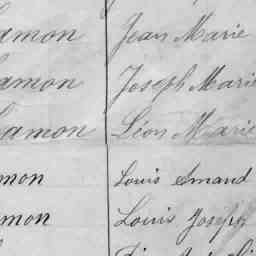 amon Jean Marie
amon Joseph Marie
amon Léon Marie
mon Louis Amand
mon Louis Joseph